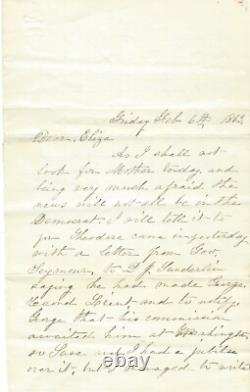 Friday Feb 6th, 1863
Dear Eliza
As I shall not
look for Mother today, and
being very much afraid the
news will not all be in the
Democrat, I will tell it to
you Theodore came in yesterday
with a letter from Gov.
Seymour, to S J Sunderlin
saying he had made George
Second Lieut and to notify
George that his commission
awaited him at Washington,
we had a jubilee
over it, but I managed to write